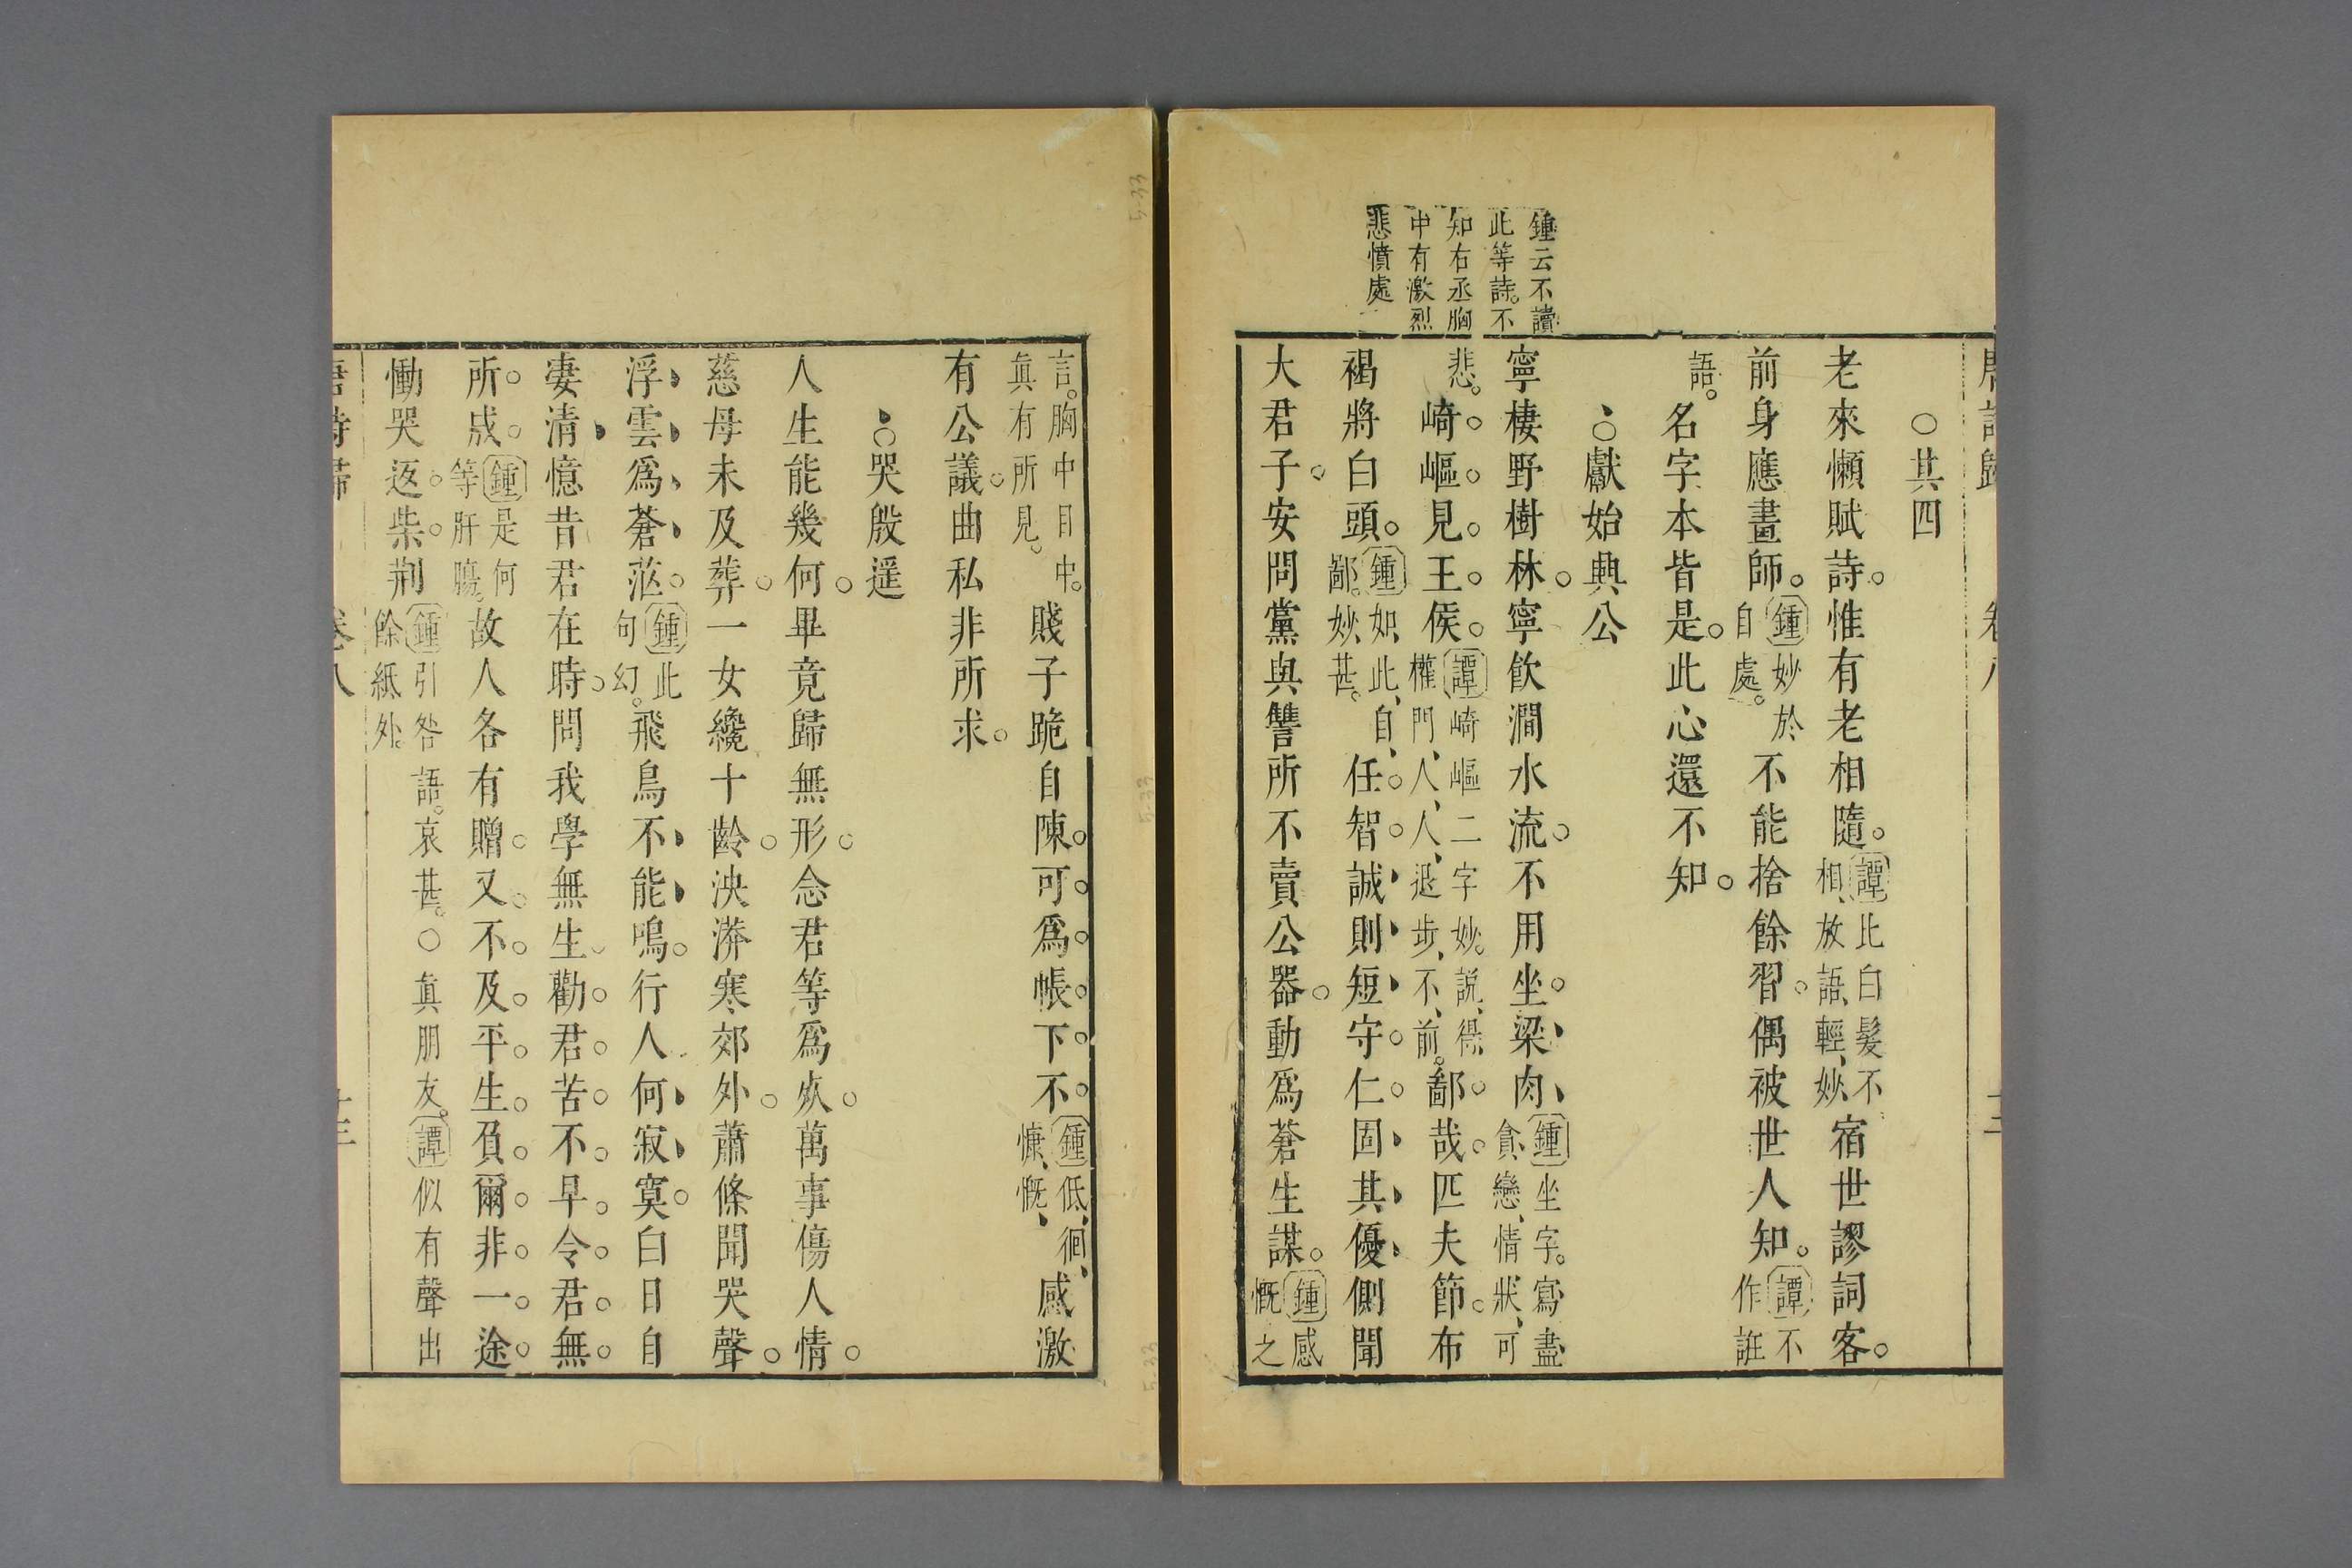 唐詩歸 卷八
○其四
老來懶賦詩。惟有老相隨。譚此白髮不相放語輕妙宿世謬詞客。
前身應畫師。鍾妙於自處。不能捨餘習。偶被世人知。譚不作誑
語。名字本皆是。此心還不知。
○獻始興公
鍾云不讀
此等詩。不
知右丞胸
中有激烈
悲憤處
寧棲野樹林。寧飲澗水流。不用坐梁肉鍾坐字。寫盡貪戀情狀可
悲。崎嶇見王侯。譚崎嶇二字妙。説得權門人人退步不前。鄙哉匹夫節。布
褐將白頭。鍾如此自鄙。妙甚。任智誠則短守仁固其優側聞
大君子。安問黨與讐所不賣公器。動爲蒼生謀。鍾感慨之
言。胸中目中。真有所見。賤子跪自陳。可爲帳下不。鍾低徊慷慨感激
有公議。曲私非所求。
○哭殷遥
人生能幾何。畢竟歸無形。念君等爲死。萬事傷人情。
慈母未及葬。一女纔十齡。泱漭寒郊外。蕭條聞哭聲。
浮雲爲蒼茫。鍾此句幻。飛鳥不能鳴。行人何寂寞。白日自
凄清憶昔君在時。問我學無生勸君苦不早令君無
所成。鍾是何等肝腸。故人各有贈。又不及平生。負爾非一途。
慟哭返柴荆鍾引咎語。哀甚。○真朋友。譚似有聲出餘紙外。
唐詩歸 卷八 十三